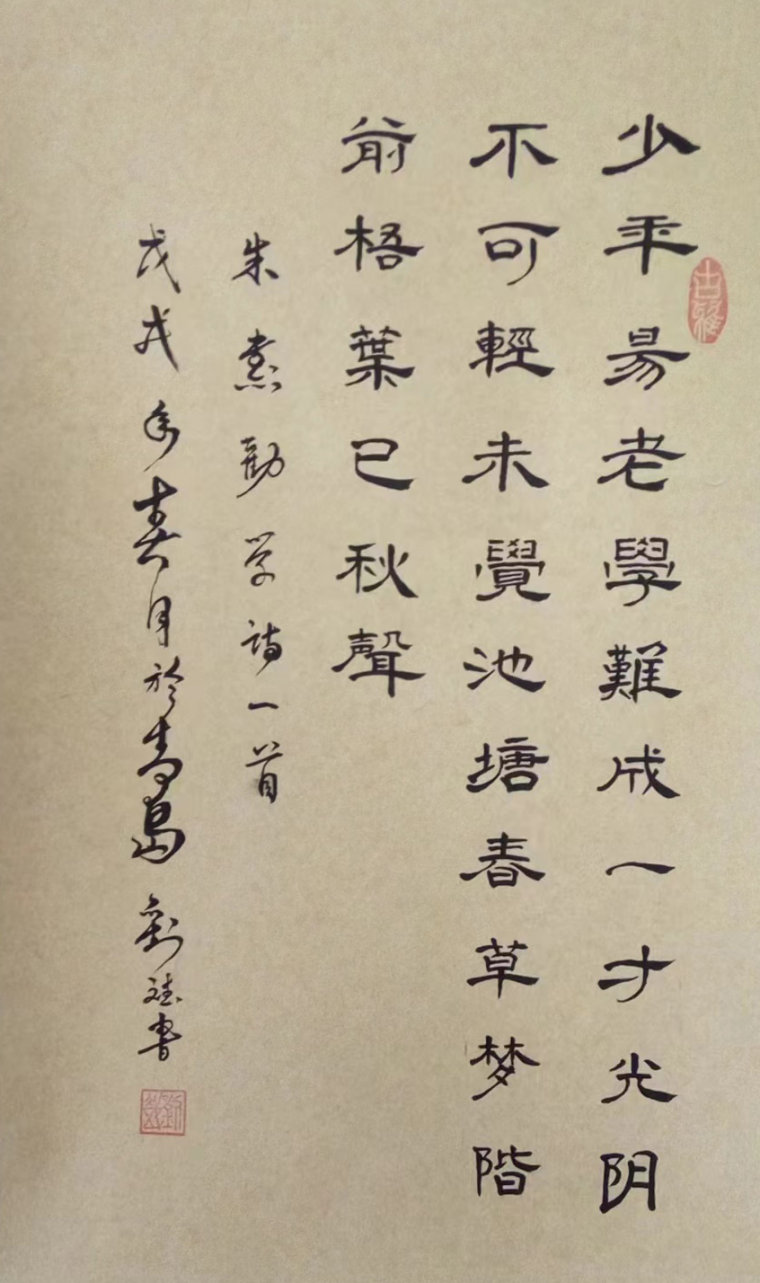 古雅
少年易老學難成一寸光阴
不可輕未覺池塘春草梦階
前梧葉已秋聲
朱熹勸学诗一首
戊戌年春月於青島劉斌書